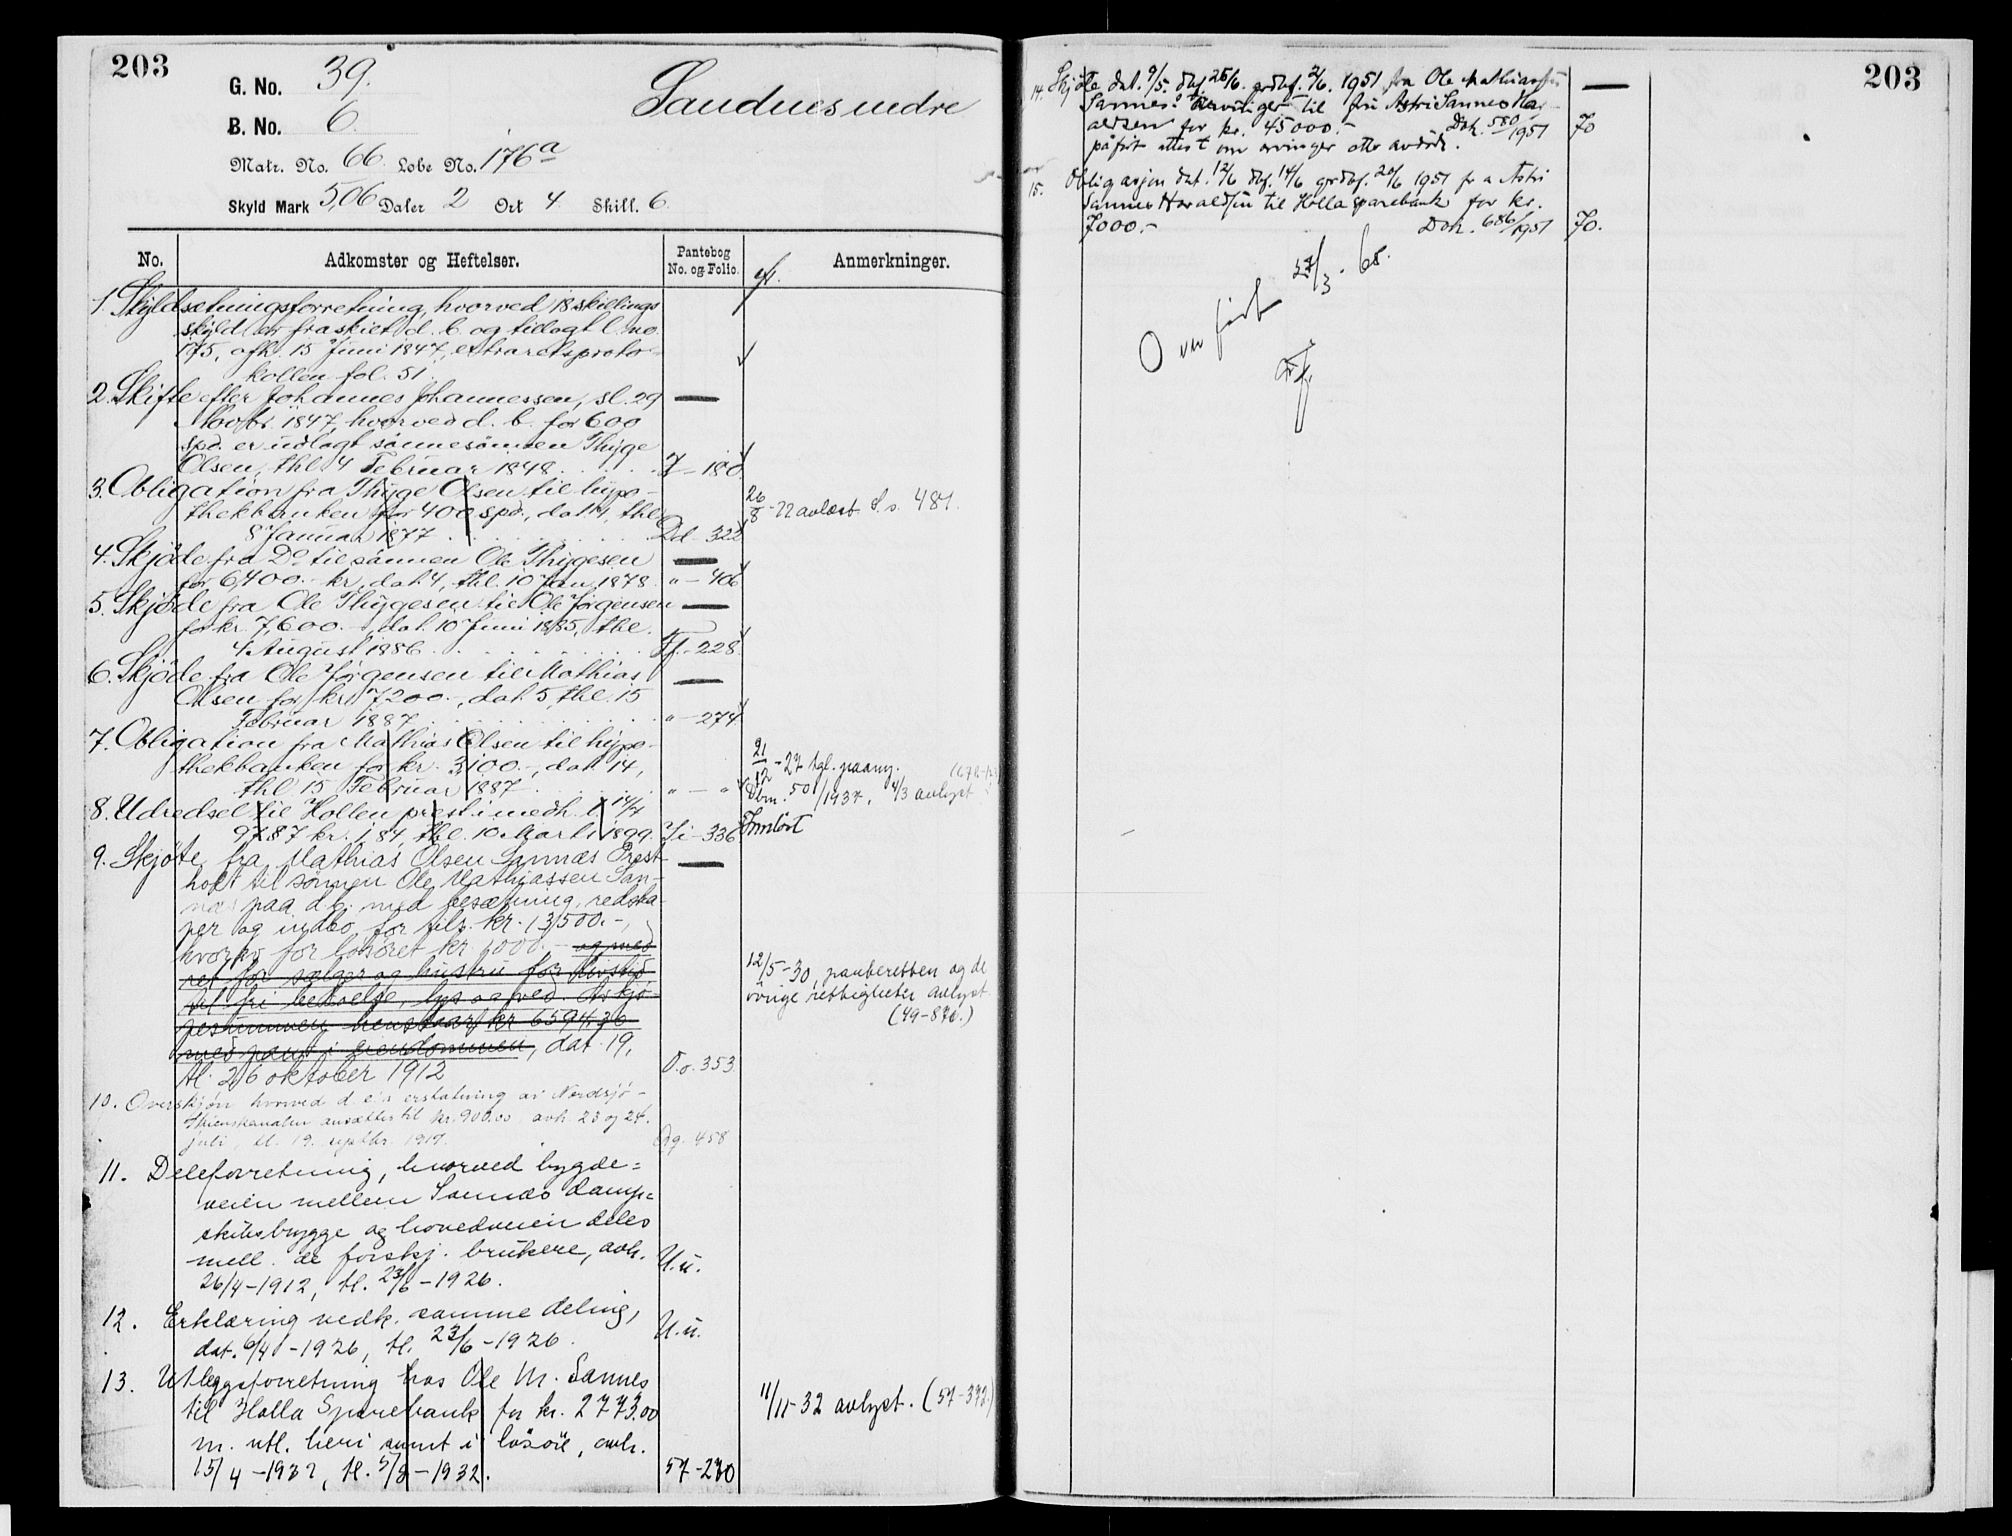 203
G. No. 39.
B. No. 6.
Sandnes nedre
Matr. No. 66. Lobe No. 176a
Skyld Mark 5,06 Daler 2 Ort 4 Skill. 6.
No. Adkomster og Heftelser. Pantebog No. og Folio. Anmerkninger.
1. Skyldsætningsforretning, hvorved 18 skillings
skyld er fraskilt d. b. og tillagt l. no.
175, afh. 15 Juni 1847, extraretsproto-
kollen fol. 51.
2. Skifte efter Johannes Johannessen, sl. 29
Novbr. 1847, hvorved d. b. for 600
spd. er udlagt sønnesønnen Thyge
Olsen, thl. 4 Februar 1848. 180
3. Obligation fra Thyge Olsen til hypo-
thekbanken for 400 spd., dat. 4, thl.
8 Januar 1877 Dd - 322
26/8 - 22 avlæst S. s. 481.
4. Skjøde fra Do til sønnen Ole Thygesen
for 6,400.- kr, dat. 4, thl. 10 Jan. 1878. " - 406
5. Skjøde fra Ole Thygesen til Ole Jørgensen
for kr. 7,600.-, dat. 10 Juni 1885, thl.
4 August 1886 Ff. - 228.
6. Skjøde fra Ole Jørgensen til Mathias
Olsen for kr. 7200.-, dat. 5, thl. 15
Februar 1887 " - 274
7. Obligation fra Mathias Olsen til hypo-
thekbanken for kr. 3,100.-, dat. 14,
thl. 15 Februar 1887. " - "
21/12 - 27 tgl. paany.
Dbn. 501/1937, 4/3 avlyst
8. Udredsel til Hollen prest i medh. l. 14/7
97 87 kr. 1,84, thl. 10 Marts 1899. Ii - 336
Innløst
9. Skjøte fra Mathias Olsen Sannæs Prest-
holt til sønnen Ole Mathiassen San-
næs paa d. b. med besætning, redska-
per og indbo for tils. kr. 13,500.-,
hvorav for løsøret kr. 1000.- og med
ret for sælger og hustru for livstid
til fri beboelse, lys og ved. Av kjø-
pesummen henstaar kr 6594,36
med pant i eiendommen, dat. 19,
tl. 26 oktober 1912 O.o. 353
12/5 - 30, panteretten og de
øvrige rettigheter avlyst.
(49-870.)
10. Overskjøn hvorved d. e.s erstatning av Nordsjø-
Skienskanalen ansættes til kr. 900.00, avh. 23 og 24.
juli, tl. 19. septbr. 1917. Qq. 458
11. Deleforretning, hvorved bygde=
veien mellem Sannæs damp=
skibsbrygge og hovedveien deles
mell. de forskj. brukere, avh.
26/4 - 1912, tl. 23/6 - 1926. U.u.
12. Erklæring vedk. samme deling,
dat. 6/4 - 1926, tl. 23/6 - 1926. U.u.
13. Utleggsforretning hos Ole M. Sannes
til Holla Sparebank for kr. 2773.00
m. utl. heri samt i løsøre, avh.
15/4 - 1932, tl. 5/8 - 1932. 57-230
11/11-32 avlyst. (57-392.)
203
14. Skjøte dat. 9/5. dbf. 25/6. grdbf. 2/6. 1951 fra Ole Mathiassen
Sannes' arvinger til fru Astri Sannes Har-
aldsen for kr. 45000.- Dok. 580/1951 70
påført attest om arvinger etter avdøde.
15. Obligasjon dat. 12/6 dbf. 14/6 grdbf. 20/6 1951 fra Astri
Sannes Haraldsen til Holla Sparebank for kr.
7000.- Dok. 686/1951 70.
Overført 27/3. 65.